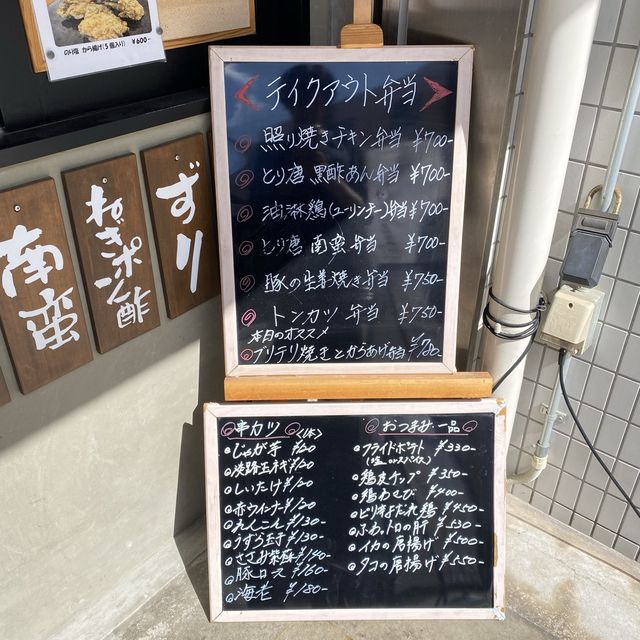 のり塩 から揚げ(5個入り) ¥600-
南蛮
ねぎポン酢
ずり
テイクアウト弁当
照り焼きチキン弁当 ¥700-
とり唐 黒酢あん弁当 ¥700-
油淋鶏(ユーリンチー)弁当 ¥700-
とり唐 南蛮弁当 ¥700-
豚の生姜焼き弁当 ¥750-
トンカツ 弁当 ¥750-
本日のオススメ
ブリテリ焼きとからあげ弁当
串カツ
じゃが芋 ¥120
淡路玉ネギ ¥120
しいたけ ¥120
赤ウインナー ¥120
れんこん ¥130-
うずら玉子 ¥130-
ささみ紫蘇 ¥140-
豚ロース ¥160-
海老 ¥180-
おつまみ一品
フライドポテト ¥330-
(塩 or スパイス)
鶏皮チップ ¥350-
鶏わさび ¥400-
ピリ辛よだれ鶏 ¥450-
ふわトロの肝 ¥530-
イカの唐揚げ ¥500-
タコの唐揚げ ¥550-